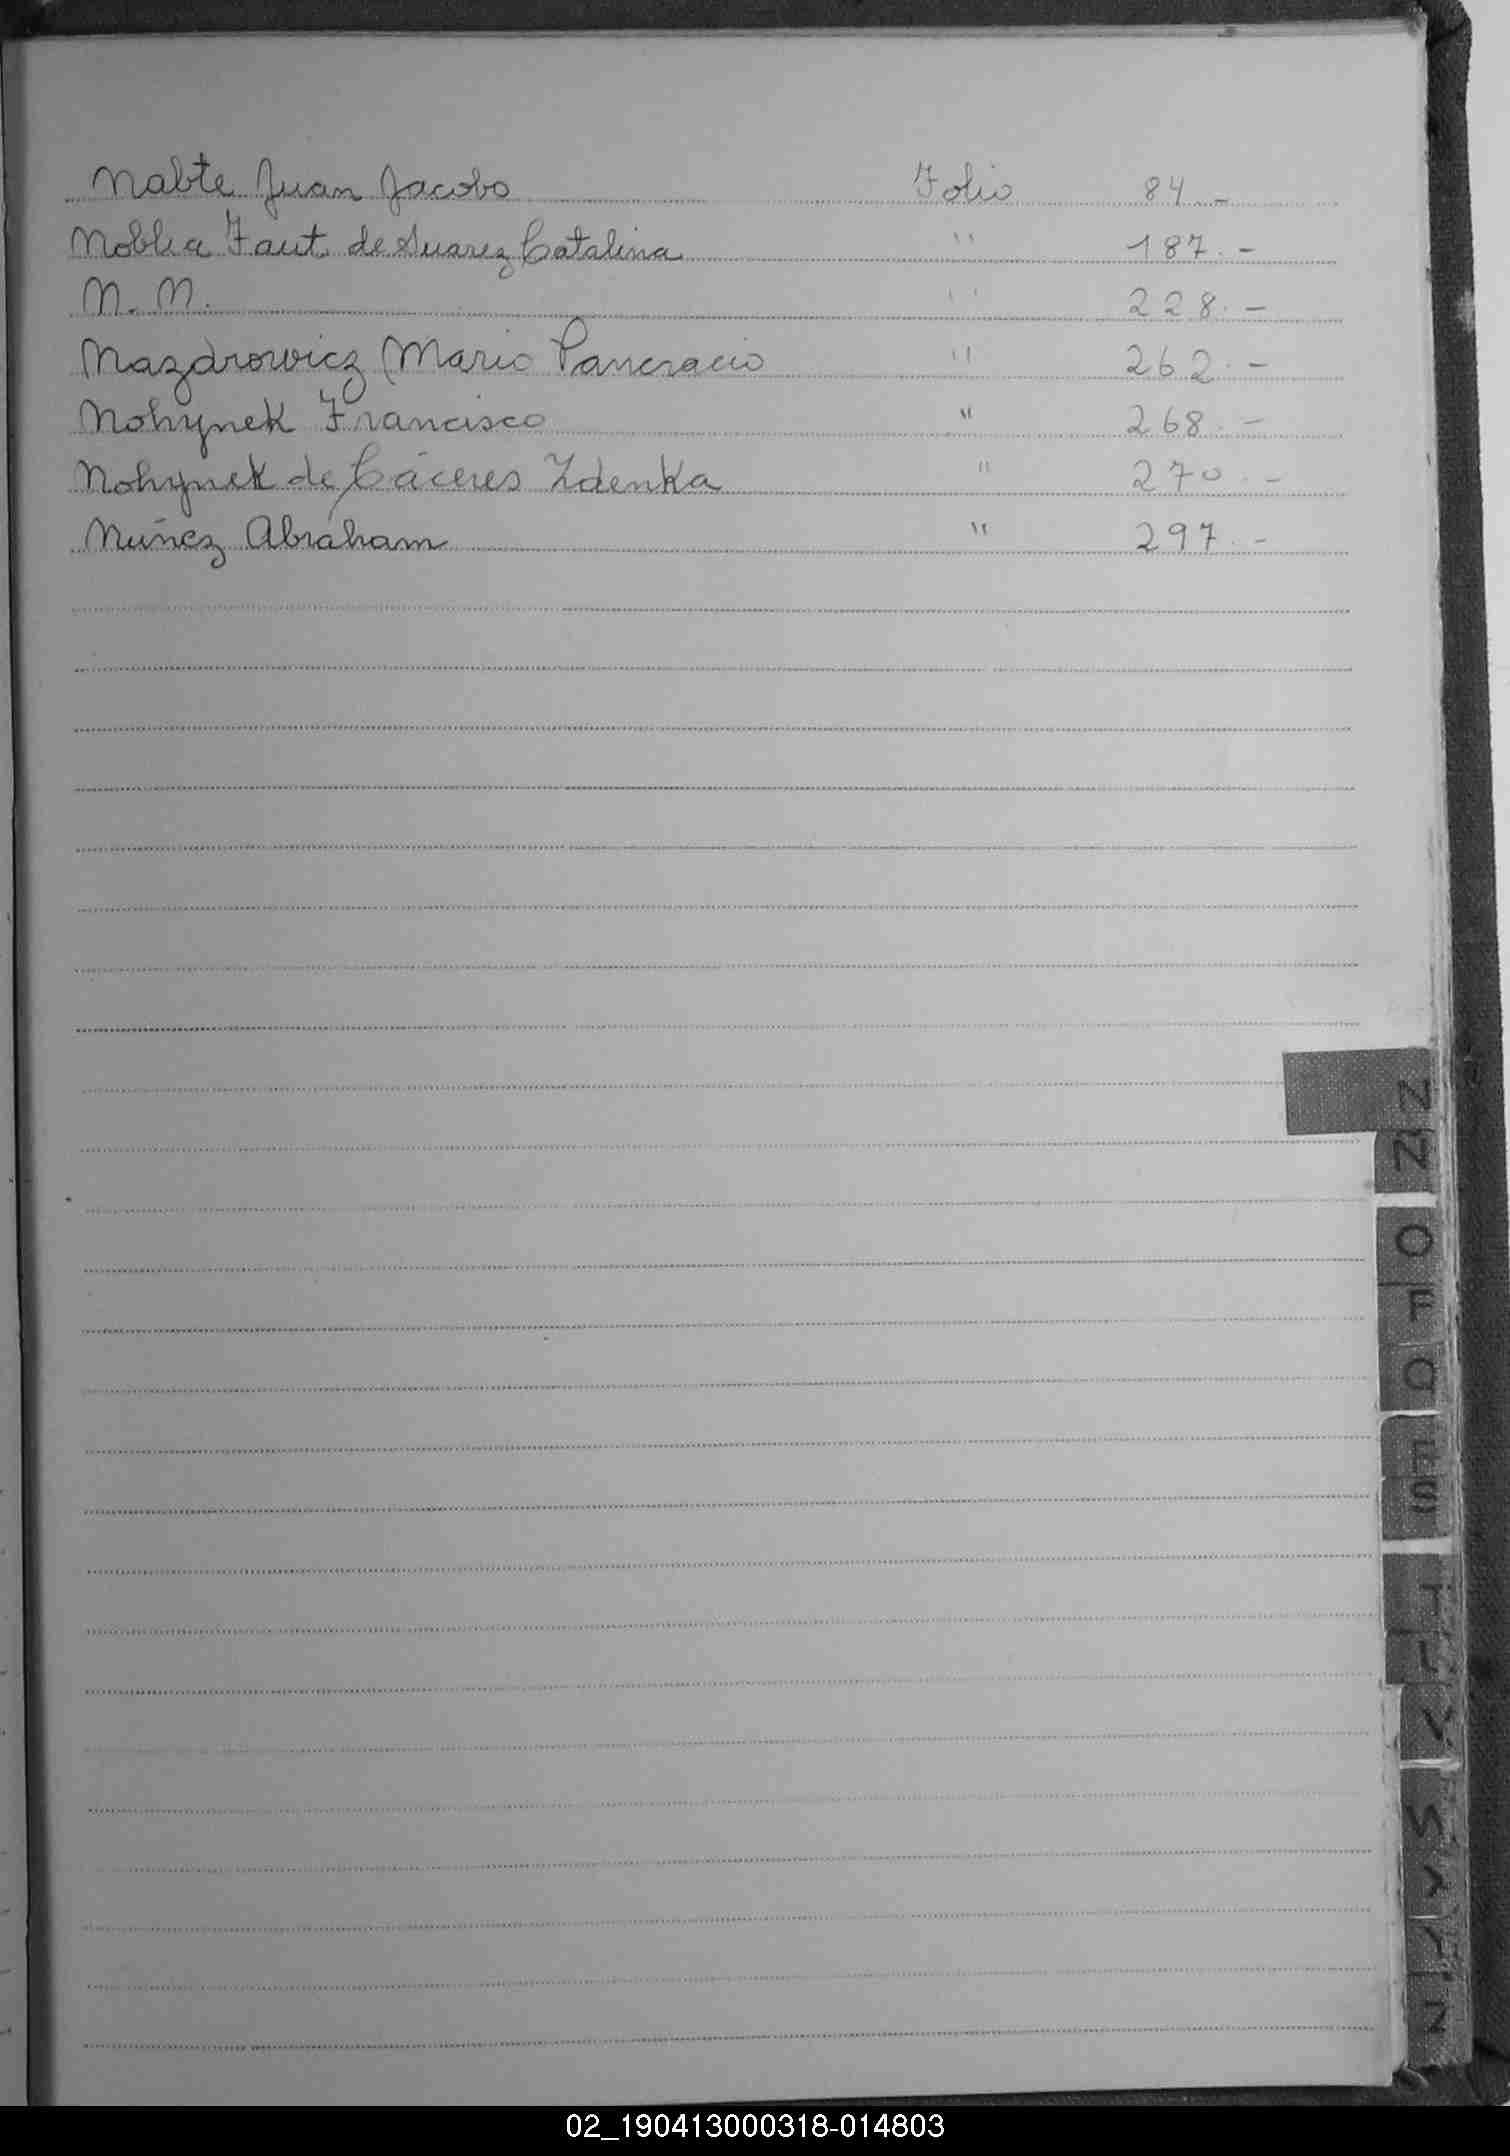 Nabte Juan Jacobo Folio 84.-
Noblia Faut de Suarez Catalina " 187.-
N. N. " 228.-
Nazdrowicz Mario Pancracio " 262.-
Nohynek Francisco " 268.-
Nohynek de Cáceres Zdenka " 270.-
Nuñez Abraham " 297.-
N
Ñ
O
P
Q
R
S
T
U
V
X
Y
Z
02_190413000318-014803